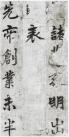 諸葛明出
表
先帝創業未半